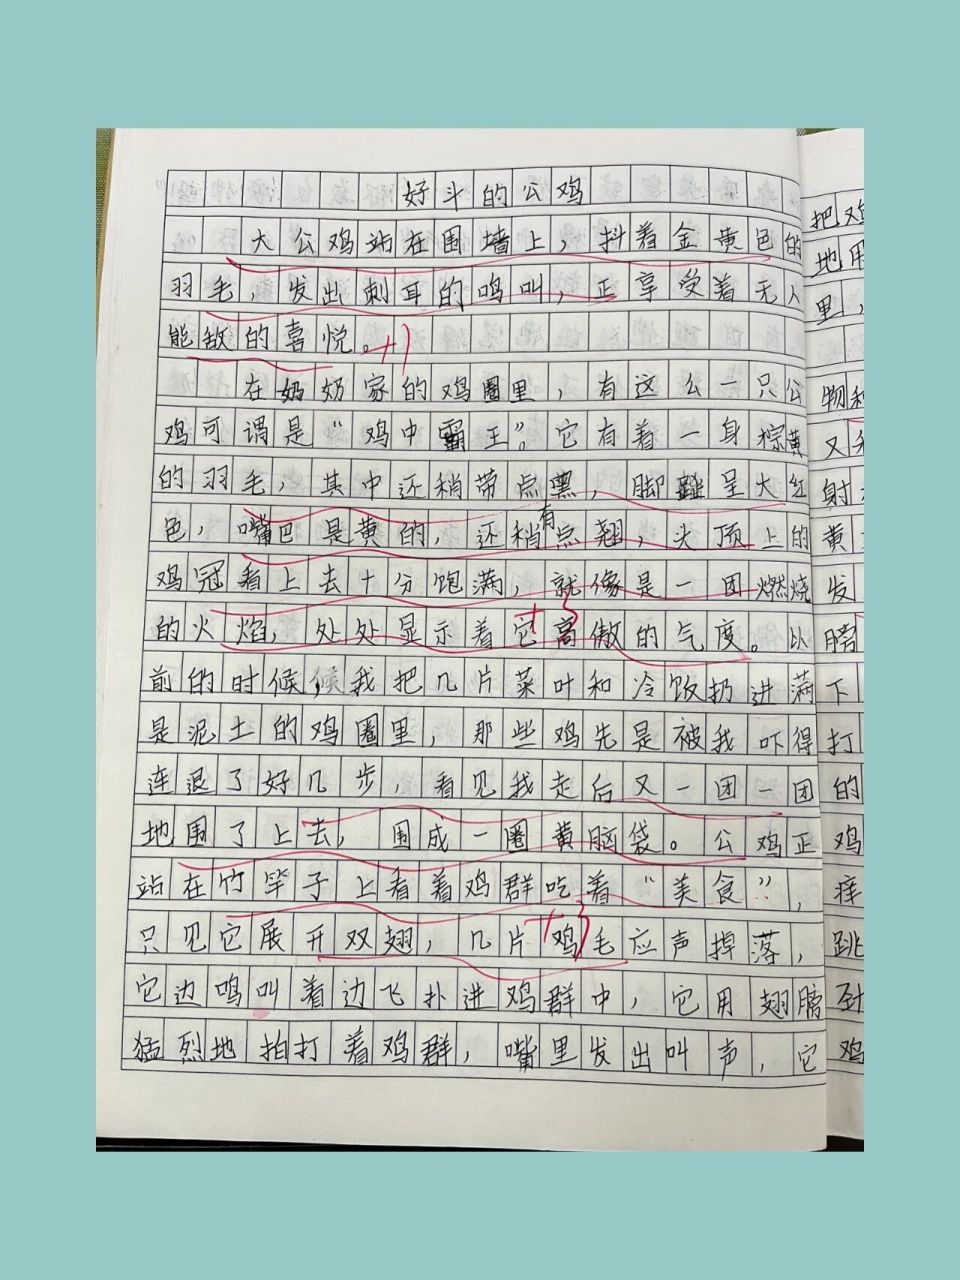 好斗的公鸡
大公鸡站在围墙上，抖着金黄色的
羽毛，发出刺耳的鸣叫，正享受着无人
能敌的喜悦。+1
在奶奶家的鸡圈里，有这么一只公
鸡可谓是“鸡中霸王”。它有着一身棕黄
的羽毛，其中还稍带点黑，脚呈大红
色，嘴巴是黄的，还稍有点翘，头顶上的
鸡冠看上去十分饱满，就像是一团燃烧
的火焰，处处显示着它高傲的气度。以
+3
前的时候，候我把几片菜叶和冷饭扔进满
是泥土的鸡圈里，那些鸡先是被我吓得
连退了好几步，看见我走后又一团一团
地围了上去，围成一圈黄脑袋。公鸡正
站在竹竿子上看着鸡群吃着“美食”，
只见它展开双翅，几片鸡毛应声掉落，
+3
它边鸣叫着边飞扑进鸡群中，它用翅膀
猛烈地拍打着鸡群，嘴里发出叫声，它
把鸡
地用
里，
物和
又
射
黄
发
膀
下
打
的
鸡
痒
跳
鸡